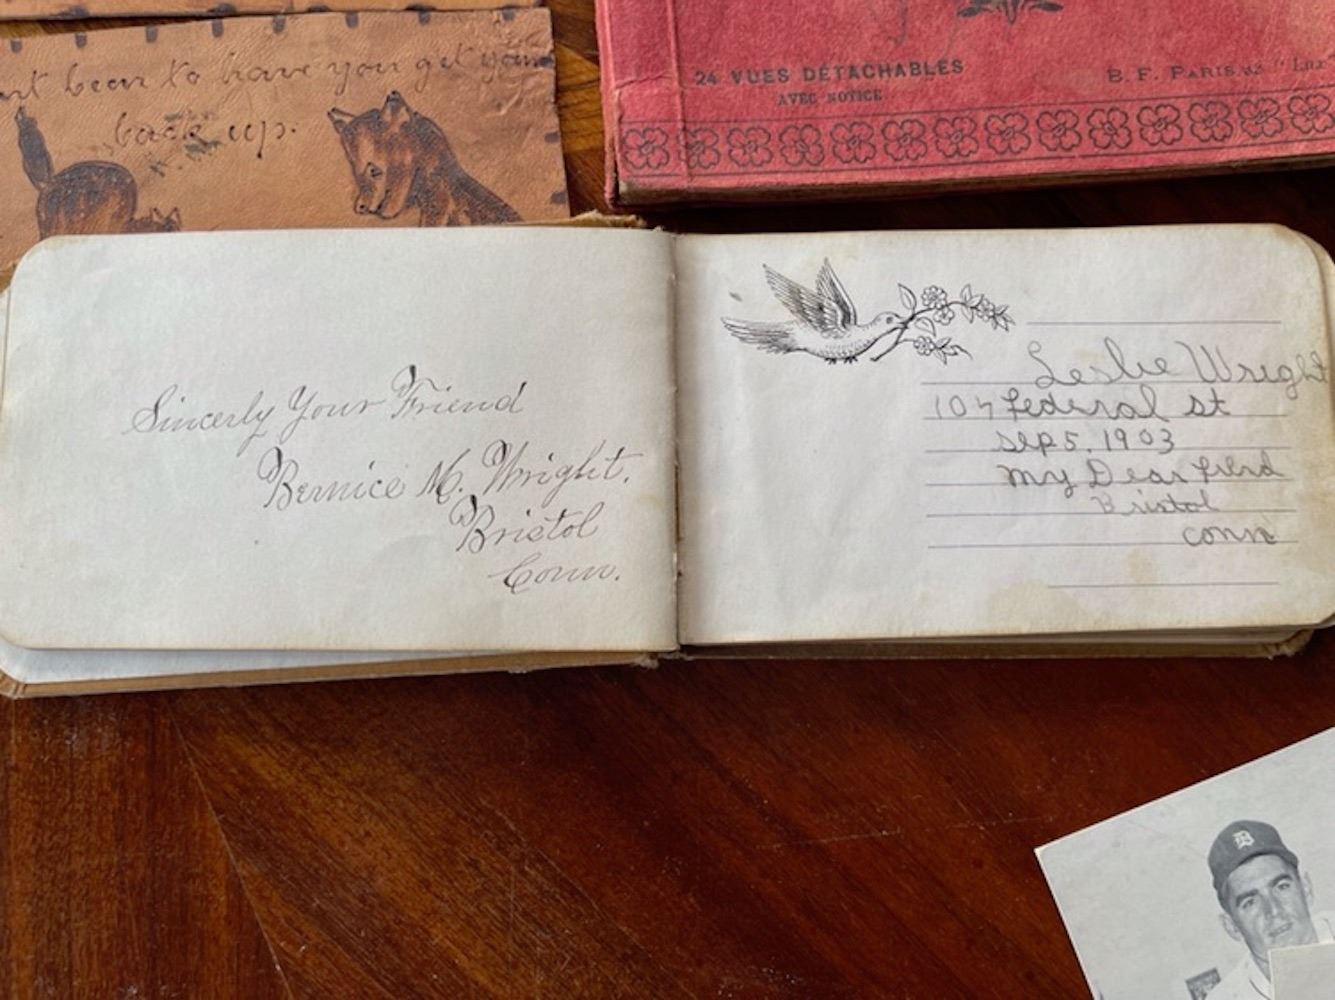 bear to have you get your
back up.
24 VUES DÉTACHABLES
AVEC NOTICE
B. F. PARIS
Sincerly Your Friend
Bernice M. Wright.
Bristol
Conn.
Leslie Wright
107 Federal st
Sep 5, 1903
My Dear frend
Bristol
conn
D